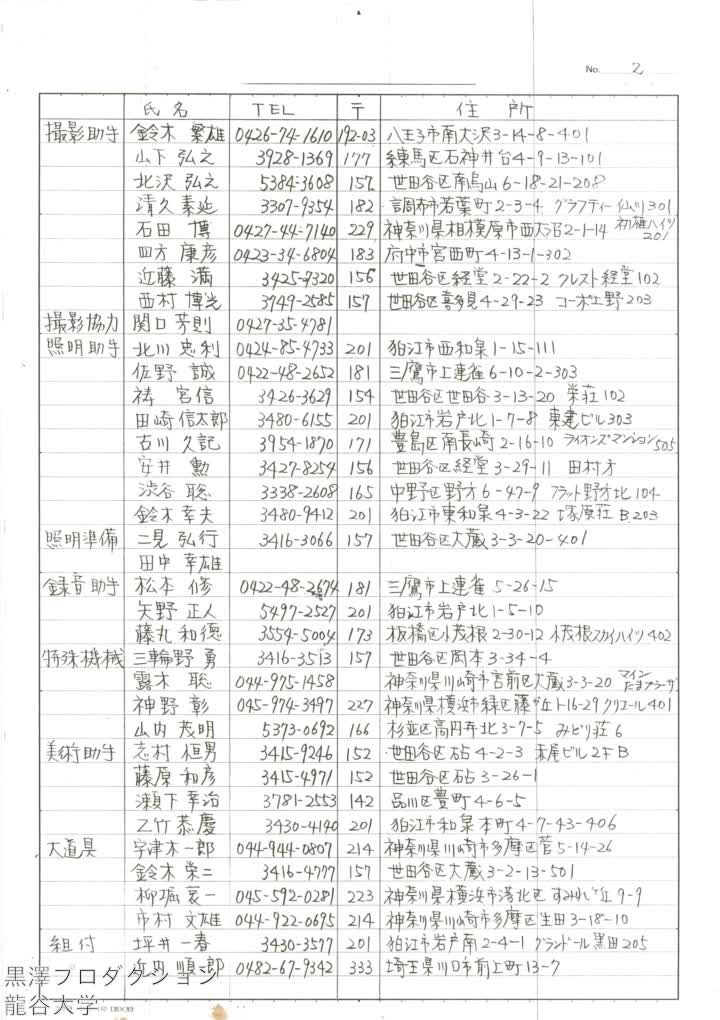 No. 2
氏名 TEL 〒 住所
撮影助手 鈴木 繁雄 0426-74-1610 192-03 八王子市南大沢3-14-8-401
山下 弘之 3928-1369 177 練馬区石神井台4-9-13-101
北沢 弘之 5384-3608 157 世田谷区南烏山6-18-21-208
清久 素延 3307-9354 182 調布市若葉町2-3-4 グラフティー仙川301
石田 博 0427-44-7140 229 神奈川県相模原市西大沼2-1-14 初雄ハイツ201
四方 康彦 0423-34-6804 183 府中市宮西町4-13-1-302
近藤 満 3425-9320 156 世田谷区経堂2-22-2 クレスト経堂102
西村 博光 3749-2585 157 世田谷区喜多見4-29-23 コーポ上野203
撮影協力 関口 芳則 0427-35-4781
照明助手 北川 忠利 0424-85-4733 201 狛江市西和泉1-15-111
佐野 誠 0422-48-2652 181 三鷹市上連雀6-10-2-303
祷 宮信 3426-3629 154 世田谷区世田谷3-13-20 栄荘102
田崎 信太郎 3480-6155 201 狛江市岩戸北1-7-8 東建ビル303
古川 久記 3954-1870 171 豊島区南長崎2-16-10 ライオンズマンション505
安井 勲 3427-8254 156 世田谷区経堂3-29-11 田村方
渋谷 聡 3338-2608 165 中野区野方6-47-9 フラット野方北104
鈴木 幸夫 3480-9412 201 狛江市東和泉4-3-22 塚原荘B203
照明準備 二見 弘行 3416-3066 157 世田谷区大蔵3-3-20-401
田中 幸雄
録音助手 松本 修 0422-48-2674 181 三鷹市上連雀5-26-15
矢野 正人 5497-2527 201 狛江市岩戸北1-5-10
藤丸 和徳 3554-5004 173 板橋区小茂根2-30-12 小茂根スカイハイツ402
特殊機械 三輪野 勇 3416-3513 157 世田谷区岡本3-34-4
露木 聡 044-975-1458 神奈川県川崎市宮前区犬蔵3-3-20 マインたまプラーザ
神野 彰 045-974-3497 227 神奈川県横浜市緑区藤が丘1-16-29 クリエール401
山内 茂明 5373-0692 166 杉並区高円寺北3-7-5 みどり荘6
美術助手 志村 恒男 3415-9246 152 世田谷区砧4-2-3 末尾ビル2F B
藤原 和彦 3415-4971 152 世田谷区砧3-26-1
瀬下 幸治 3781-2553 142 品川区豊町4-6-5
乙竹 恭慶 3430-4140 201 狛江市和泉本町4-7-43-406
大道具 宇津木一郎 044-944-0807 214 神奈川県川崎市多摩区菅5-14-26
鈴木 栄二 3416-4777 157 世田谷区大蔵3-2-13-501
柳堀 袈一 045-592-0281 223 神奈川県横浜市港北区すみれが丘9-9
市村 文雄 044-922-0695 214 神奈川県川崎市多摩区生田3-18-10
組付 坪井 一春 3430-3577 201 狛江市岩戸南2-4-1 グランドール黒田205
順一郎 0482-67-9342 333 埼玉県川口市前上町13-7
黒澤プロダクション
龍谷大学